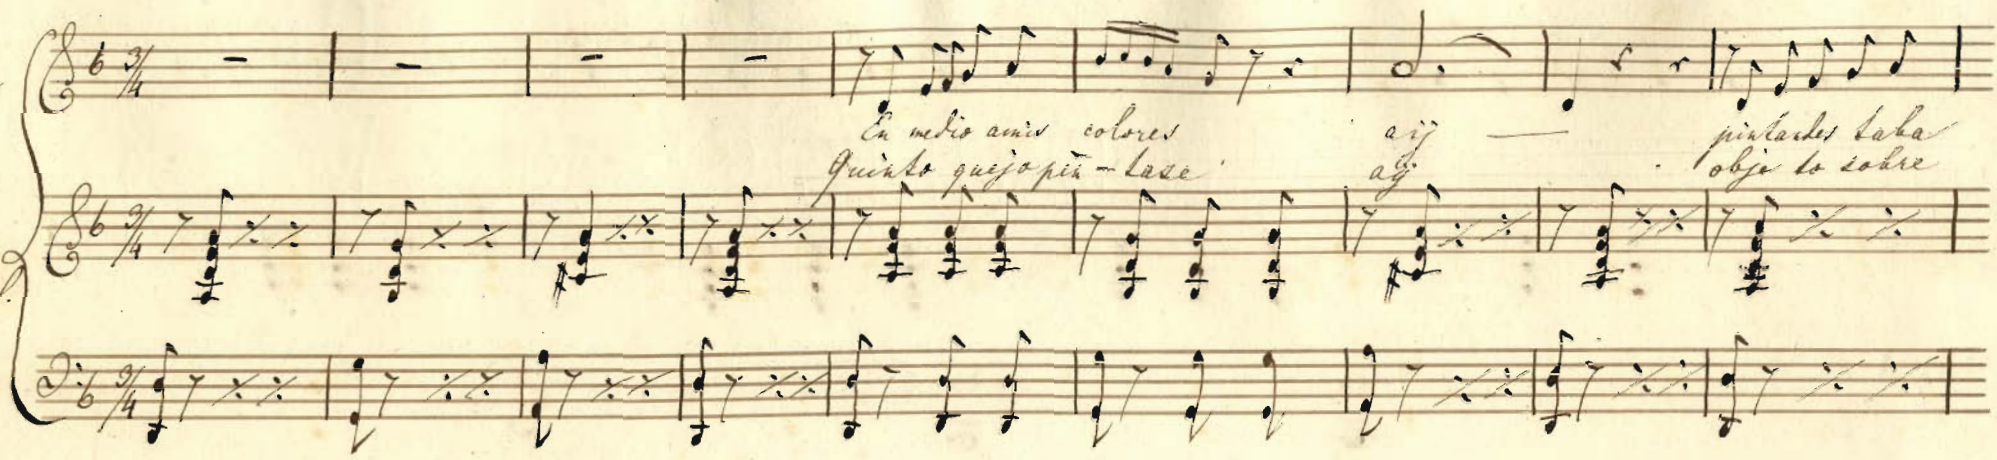 3/4
En medio amis colores aij — pintandes taba
Quinto quejo pin - tase aij obje to sobre
3/4
3/4